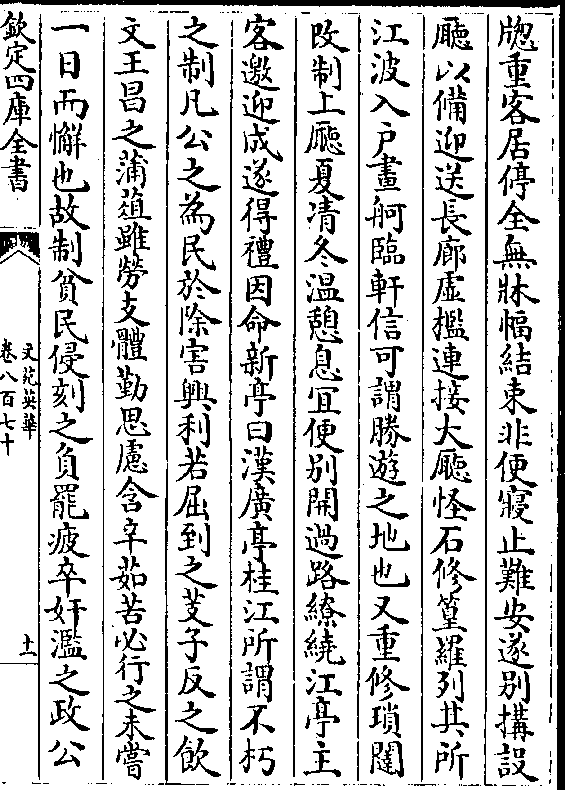 牕重客居停全無牀幅結束非便寢止難安遂别搆設
廳以備迎送長廊虚檻連接大廳怪石修篁羅列其所
江波入户畫舸臨軒信可謂勝遊之地也又重修瑣闥
改制上廳夏凊冬温憩息宜便别開過路繚繞江亭主
客邀迎成遂得禮因命新亭曰漢廣亭桂江所謂不朽
之制凡公之為民於除害興利若屈到之芰子反之飲
文王昌之蒲葅雖勞支體勤思慮含辛茹苦必行之未嘗
一日而懈也故制貧民侵刻之負罷疲卒奸濫之政公
欽定四庫全書
文苑英華
卷八百七十
十一